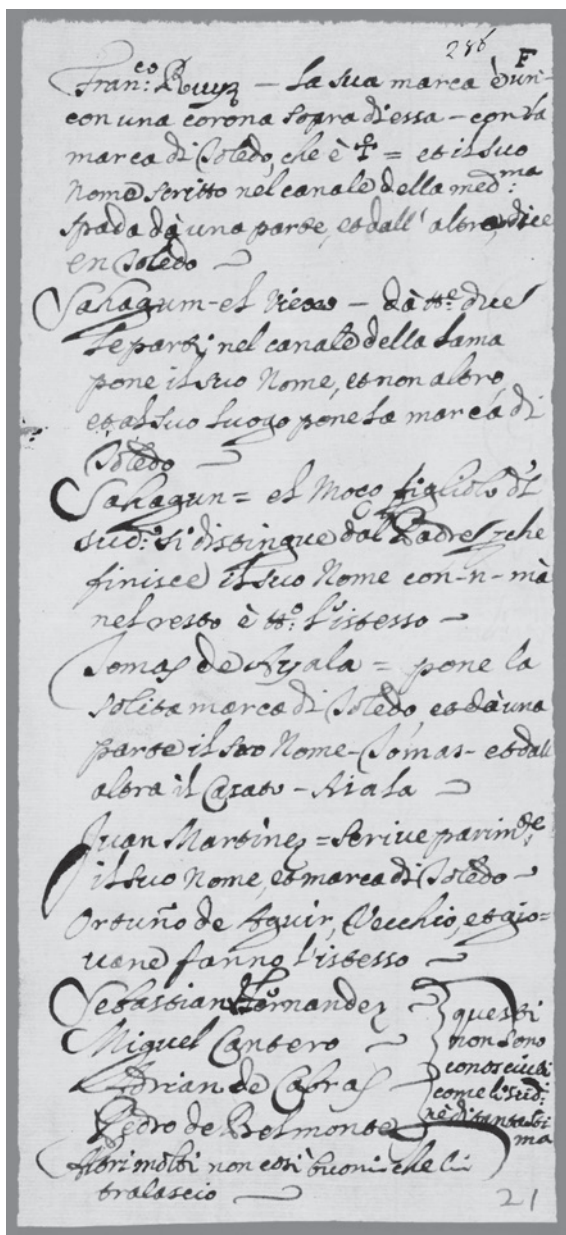 286 F
Fran:co Ruyz — la sua marca è un-
con una corona sopra di essa — con la
marca di Toledo, che è = et il suo
Nome scritto nel canale della med:ma
spada dà una parte, et dall' altra, dice
en Toledo —
Sahagum - el Viejo — dà tte due
le parti nel canale della lama
pone il suo Nome, et non altro
et al suo luogo pone la marca di
Toledo —
Sahagun = el Moço figliolo del
sud:o si distingue dal Padre, che
finisce il suo Nome con -n- mà
nel resto è tto: l'istesso —
Tomas de Ayala = pone la
solita marca di Toledo, et dà una
parte il suo Nome - Tomas - et dall
altra il Casato - Aiala —
Juan Martinez = scrive parim:te
il suo Nome, et marca di Toledo —
Ortuño de Aguir, Vecchio, et gio=
uane fanno l'istesso —
Sebastian Hernandez
Miguel Cantero
Adrian de Cafras
Pedro de Belmonte
questi
non sono
conosciuti
come li sud:i
nè di tanta sti
ma
Altri molti non così buoni che li
tralascio —
21